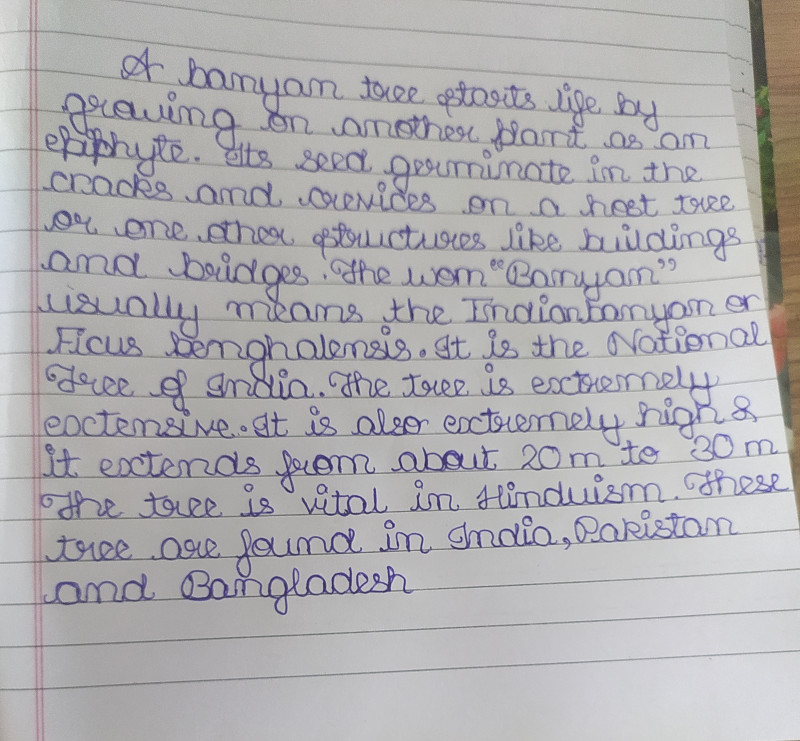 A banyam tree starts life by
growing on another plant as an
epiphyte. Its seed germinate in the
cracks and crevices on a host tree
or one other structures like buildings
and bridges. The wom "Banyan"
usually means the Indian banyan or
Ficus benghalensis. It is the National
Tree of India. The tree is extremely
extensive. It is also extremely high &
it extends from about 20 m to 30 m
The tree is vital in Hinduism. These
tree are found in India, Pakistan
and Bangladesh